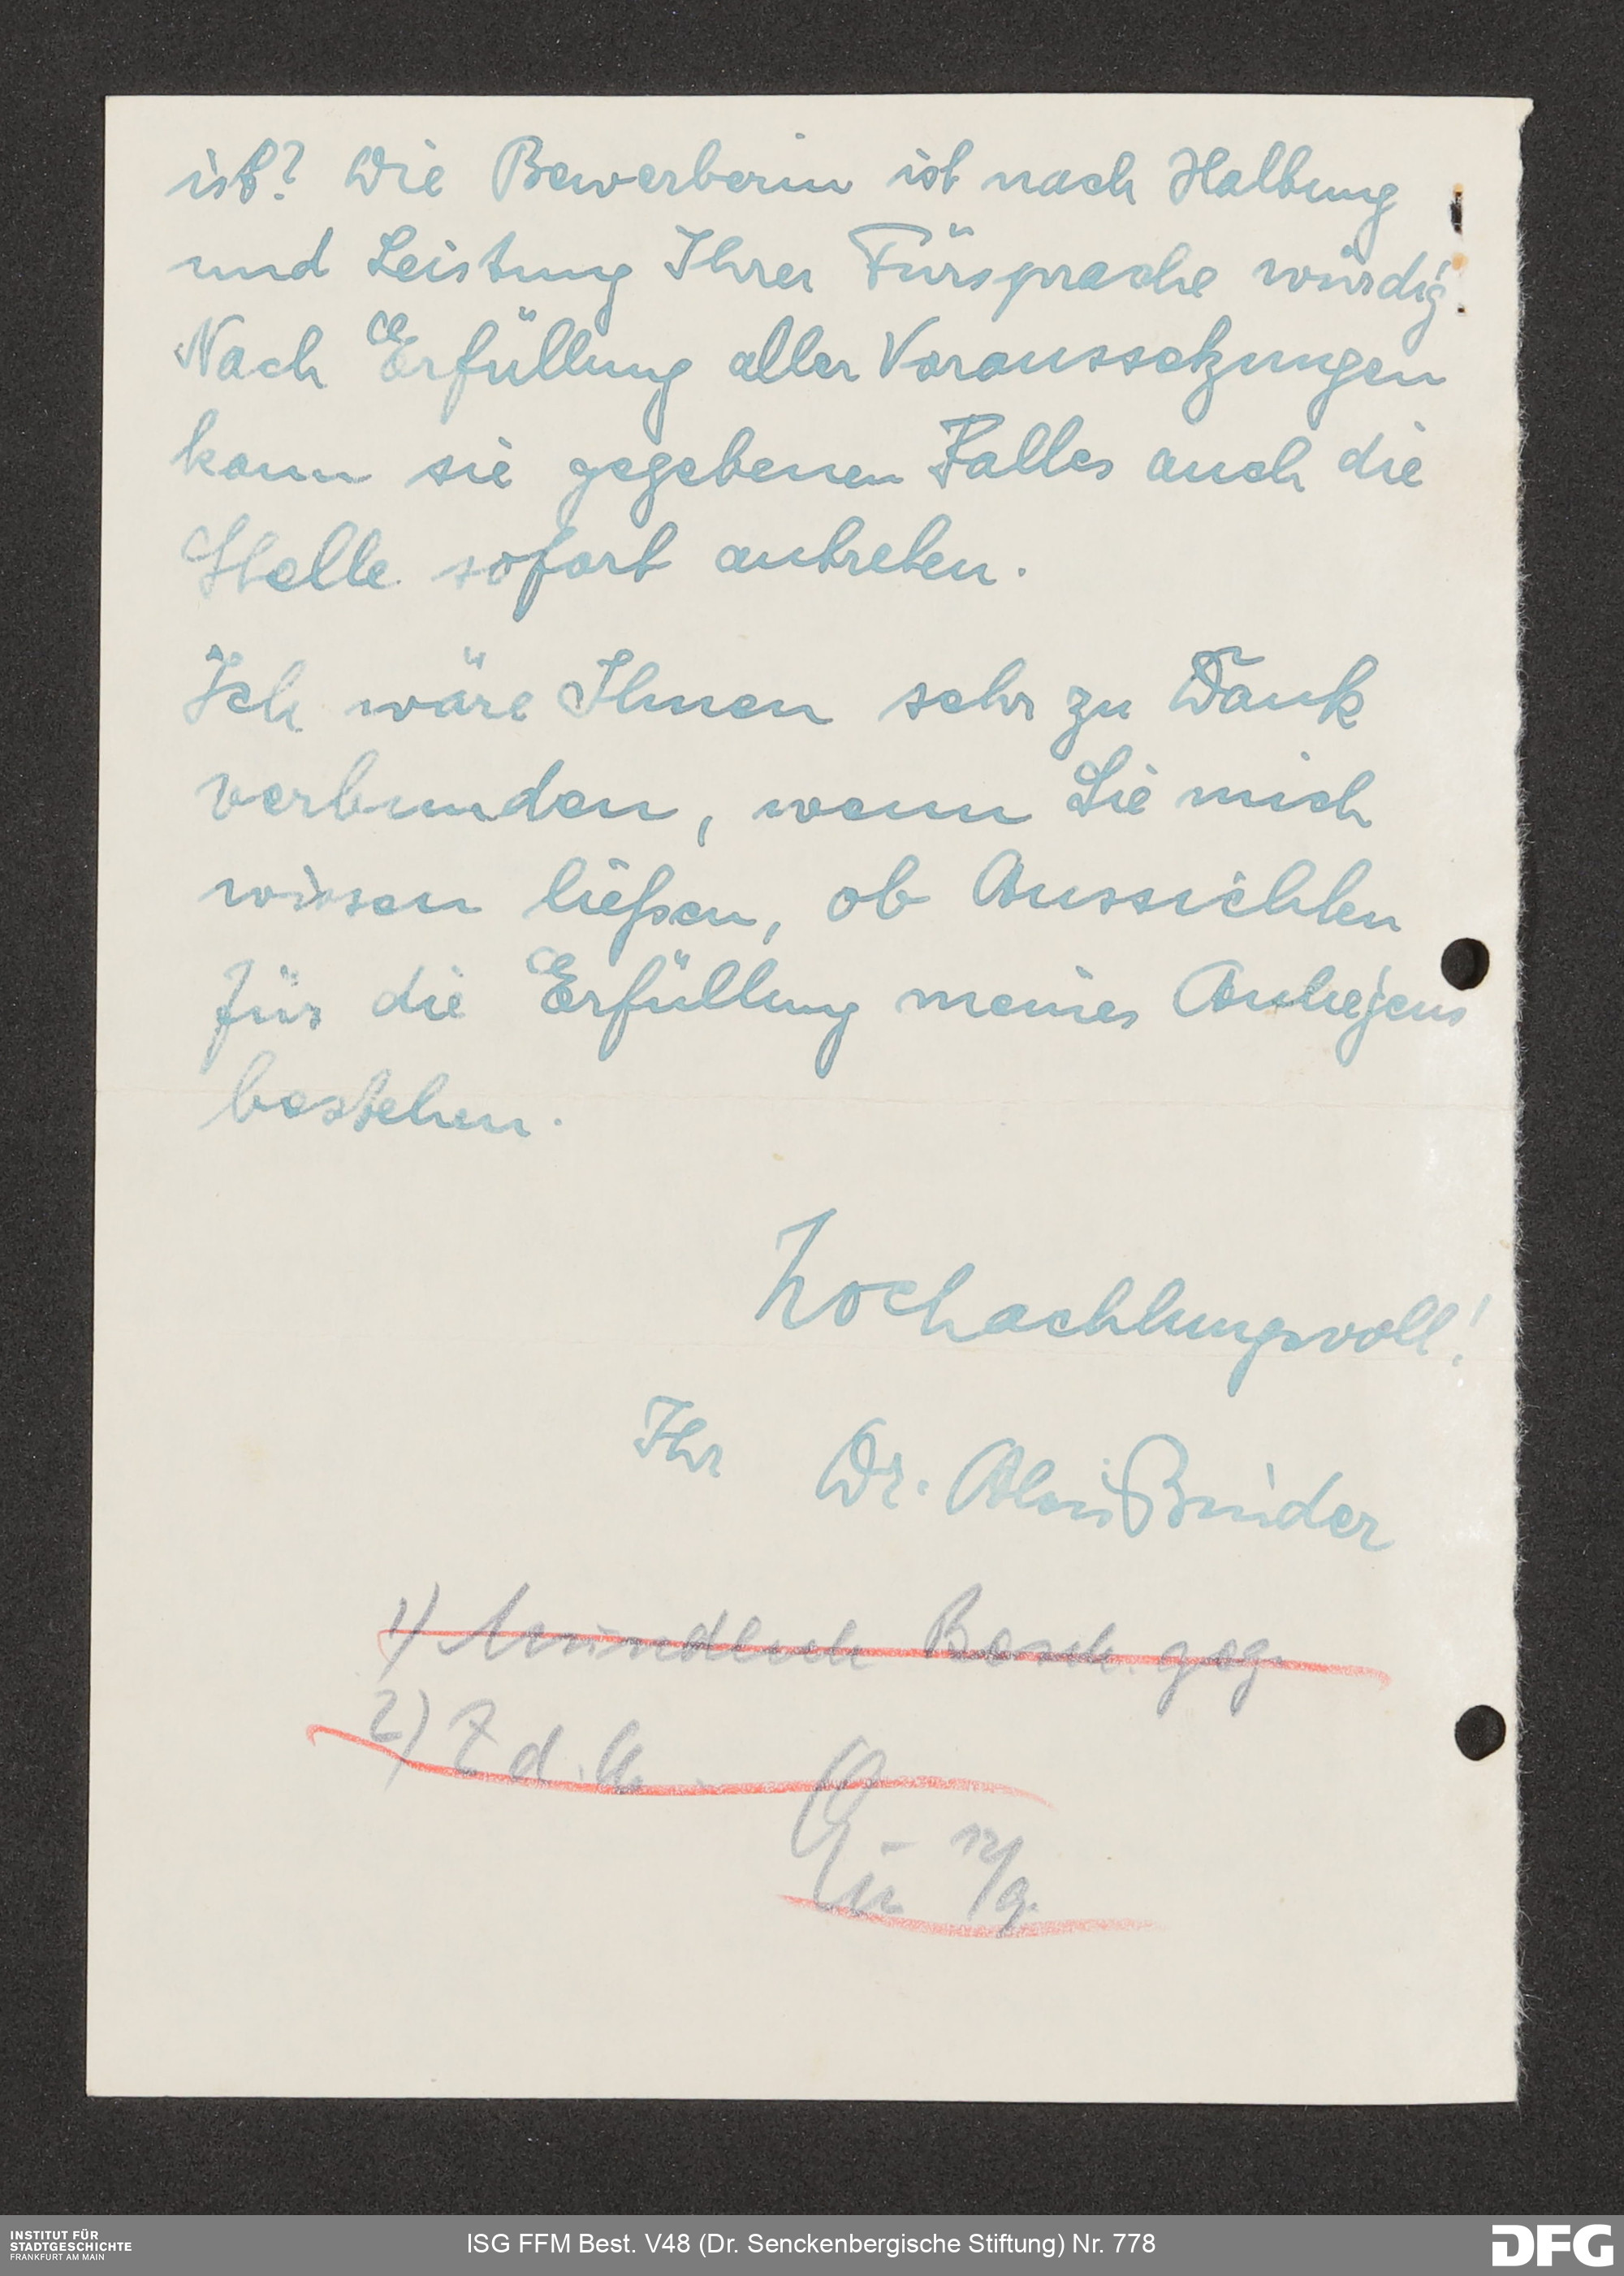 ist? Die Bewerberin ist nach Haltung
und Leistung Ihrer Fürsprache würdig.
Nach Erfüllung aller Voraussetzungen
kann sie gegebenen Falles auch die
Stelle sofort antreten.
Ich wäre Ihnen sehr zu Dank
verbunden, wenn Sie mich
wissen ließen, ob Aussichten
für die Erfüllung meines Anliegens
bestehen.
Hochachtungsvoll!
Ihr Dr. Alois Binder
1) Mündlich Besch. geg.
2) Z d. A.
12/9.
INSTITUT FÜR
STADTGESCHICHTE
FRANKFURT AM MAIN
ISG FFM Best. V48 (Dr. Senckenbergische Stiftung) Nr. 778
DFG